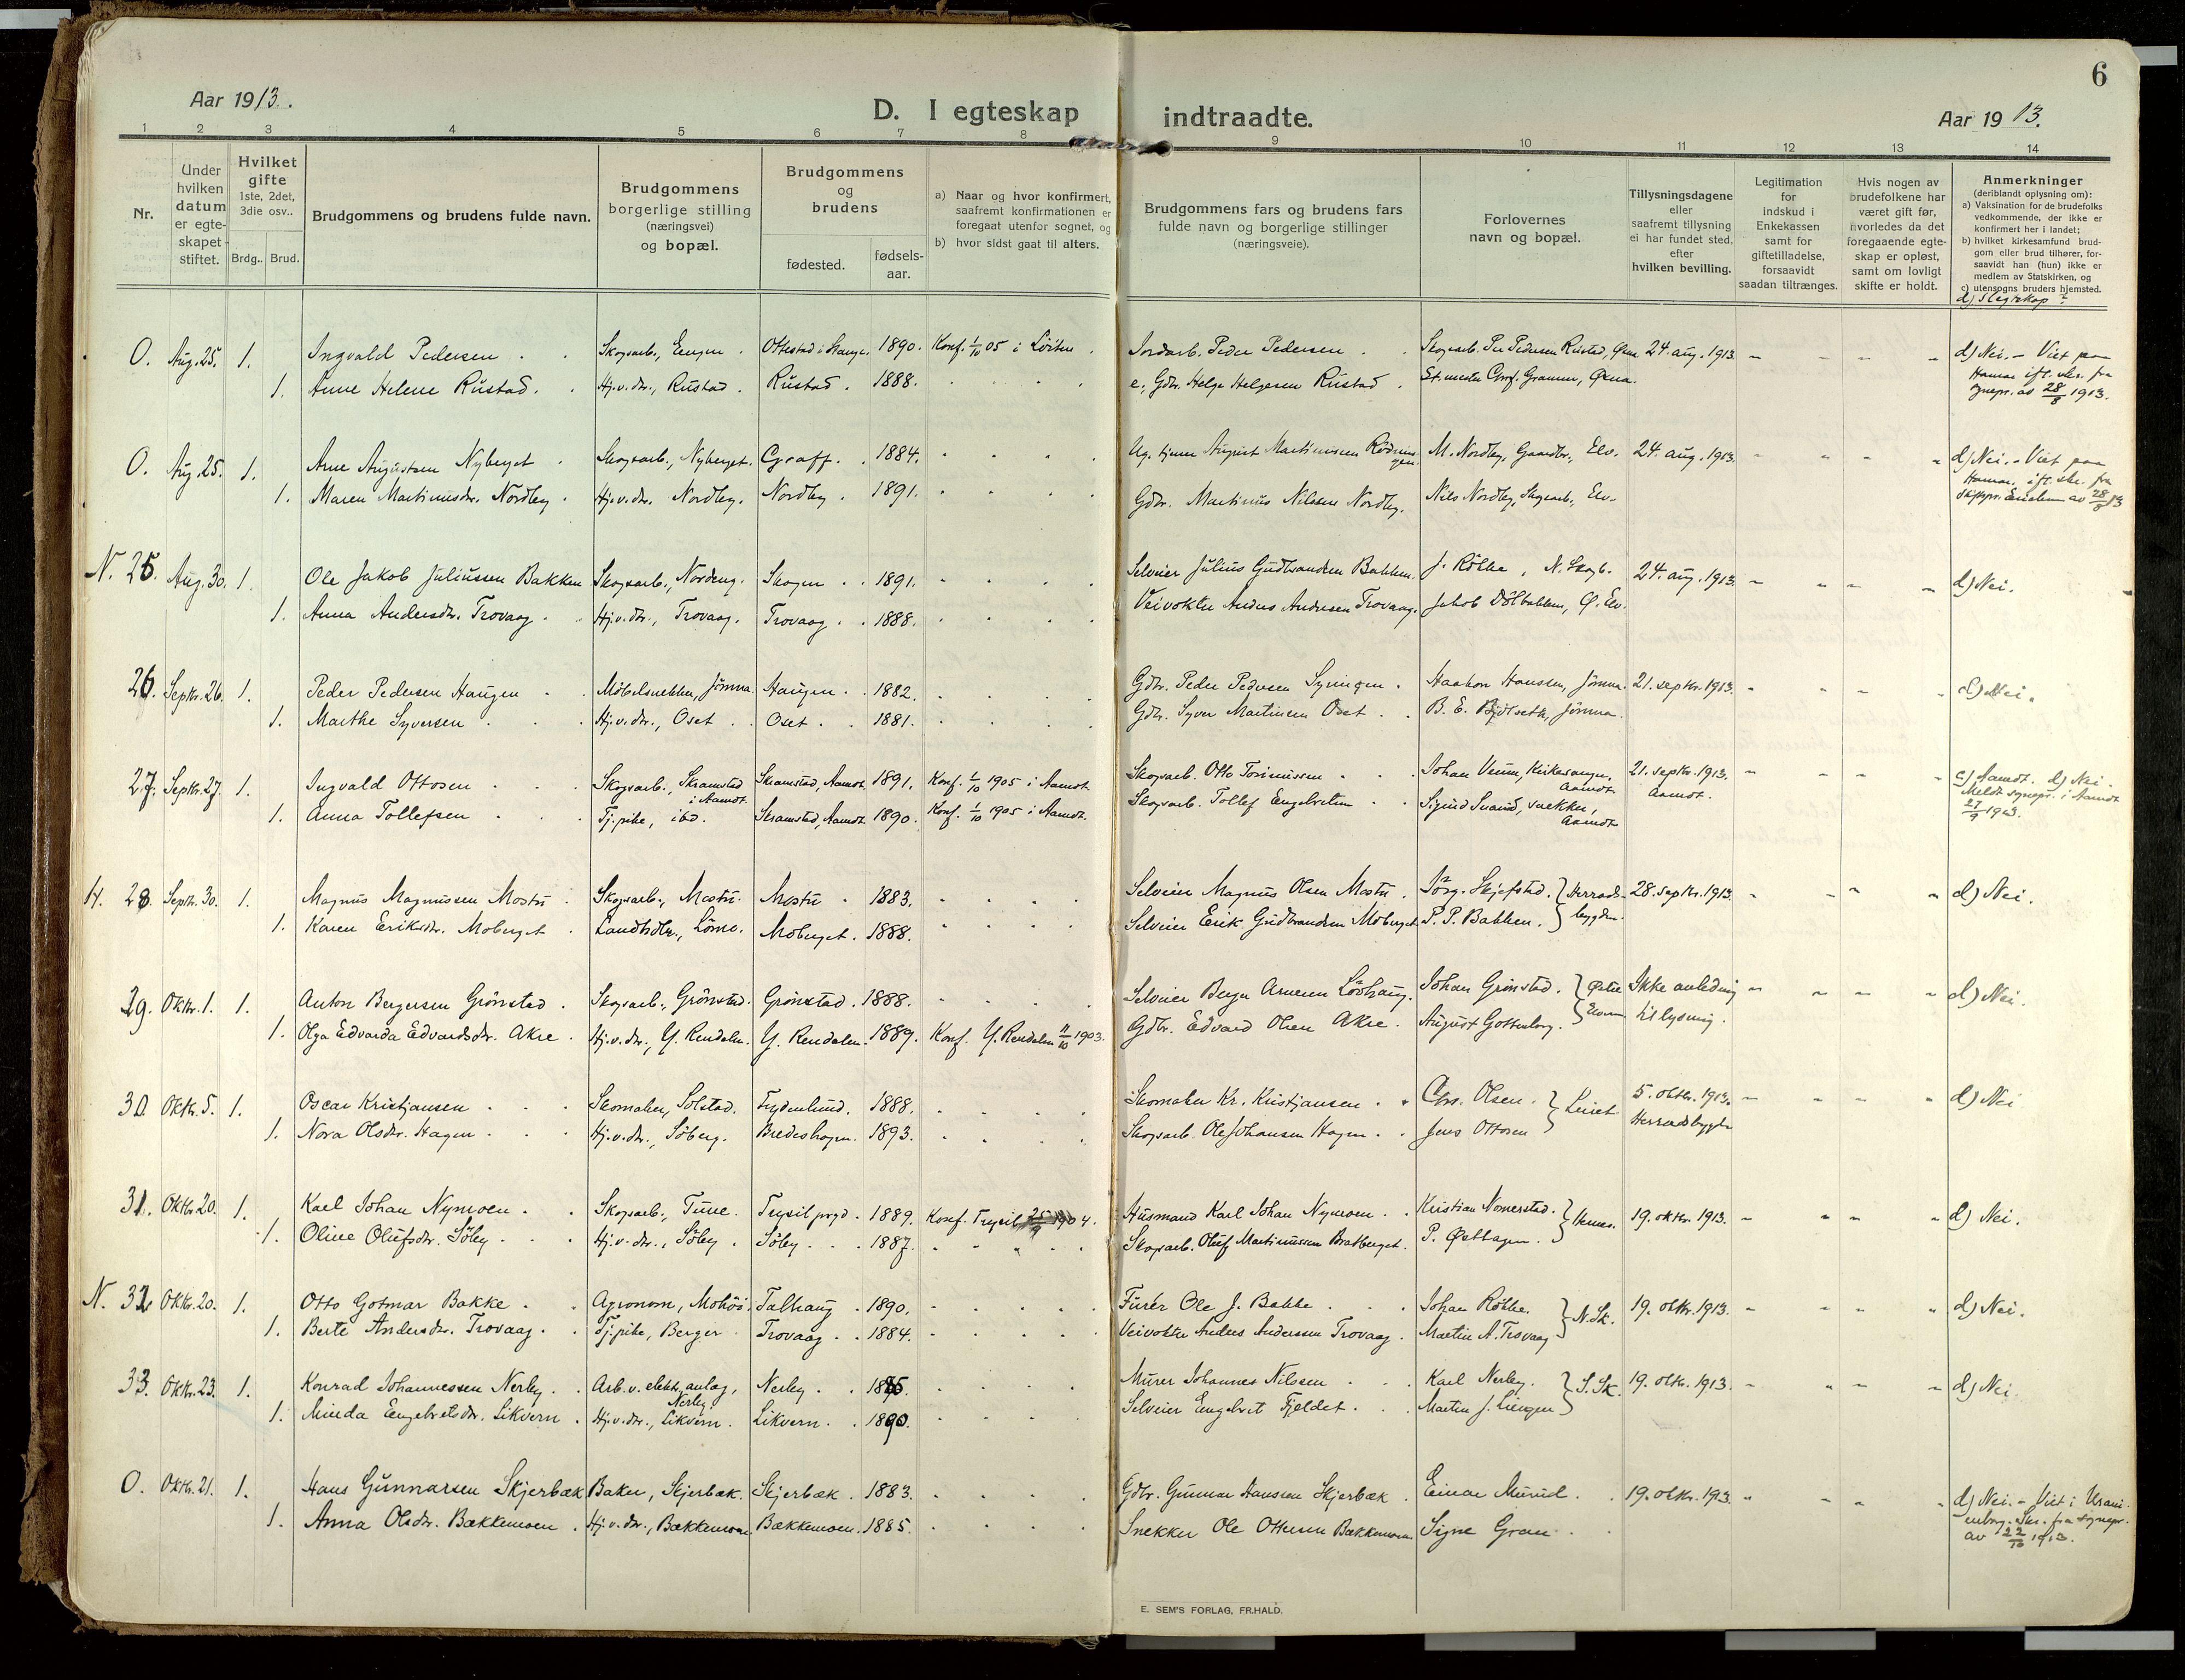 6
Aar 1913.
D. I egteskap indtraadte.
Aar 1913.
1 2 3 4 5 6 7 8 9 10 11 12 13 14
Nr.
Under hvilken datum er egteskapet stiftet.
Hvilket gifte
1ste, 2det, 3die osv..
Brdg.. Brud.
Brudgommens og brudens fulde navn.
Brudgommens borgerlige stilling (næringsvei) og bopæl.
Brudgommens og brudens
fødested.
fødsels-aar.
a) Naar og hvor konfirmert, saafremt konfirmationen er foregaat utenfor sognet, og
b) hvor sidst gaat til alters.
Brudgommens fars og brudens fars fulde navn og borgerlige stillinger (næringsveie).
Forlovernes navn og bopæl.
Tillysningsdagene eller saafremt tillysning ei har fundet sted, efter hvilken bevilling.
Legitimation for indskud i Enkekassen samt for giftetilladelse, forsaavidt saadan tiltrænges.
Hvis nogen av brudefolkene har været gift før, hvorledes da det foregaaende egteskap er opløst, samt om lovligt skifte er holdt.
Anmerkninger
(deriblandt oplysning om):
a) Vaksination for de brudefolks vedkommende, der ikke er konfirmert her i landet;
b) hvilket kirkesamfund brudgom eller brud tilhører, forsaavidt han (hun) ikke er medlem av Statskirken, og
c) utensogns bruders hjemsted.
d) Slegtskap?
O. Aug. 25. 1. Ingvald Pedersen Skogsarb., Engen Ottestad i Stange. 1890. Konf. 1/10 05 i Löiten. Jordarb. Peder Pedersen Skogsarb. Per Pedersen Rustad, Øxna 24. aug. 1913. d) Nei. – Viet paa
1. Anne Helene Rustad. Hj.v.dr., Rustad. Rustad. 1888. e. Gdbr. Helge Helgesen Rustad. St.mester Chrf. Grammer, Øxna. Hamar ift. skr. fra
sognepr. av 28/8 1913.
O. Aug. 25. 1. Arne Augustsen Nyberget Skogsarb., Nyberget. Graff. 1884. Ug. tjener August Martinsen Rödningen. M. Nordby, Gaardbr., Elv. 24. aug. 1913. d) Nei. – Viet paa
1. Maren Martinusdr. Nordby. Hj.v.dr. Nordby. Nordby. 1891. Gdbr. Martinus Nilssen Nordby. Nils Nordby, Skogsarb., Elv. Hamar, ift. skr. fra
28/8 13
N. 25. Aug. 30. 1. Ole Jakob Juliussen Bakken Skogsarb., Nordeng. Skogen 1891. Selveier Julius Gudbrandsen Bakken. J. Rökke, N. Skogb. 24. aug. 1913. d) Nei.
1. Anna Andersdr. Trovaag. Hj.v.dr., Trovaag. Trovaag. 1888. Veivokter Anders Andersen Trovaag. Jakob Dölbakken, Ø. Elv.
26. Septr. 26. 1. Peder Pedersen Haugen Möbelsnekker, Jömna. Haugen. 1882. Gdbr. Peder Pedersen Haakon Hanssen, Jömna. 21. septbr. 1913. d) Nei.
1. Marthe Syversen Hj.v.dr., Oset. Oset. 1881. Gdbr. Syver Martinsen Oset. B. E. Bjölseth, Jömna.
27. Septr. 27. 1. Ingvald Ottosen Skogsarb., Skramstad i Aamot. Skramstad, Aamot. 1891. Konf. 1/10 1905 i Aamot. Skogsarb. Otto Torinussen Johan Veum, Kirkesanger, Aamot 21. septbr. 1913. Aamot. c) Aamot. d) Nei.
1. Anna Tollefsen Tj.pike, ibd. Skramstad, Aamot. 1890. Konf. 1/10 1905 i Aamot. Skogsarb. Tollef Engebretsen Sigurd Svand, snekker, Aamot Meldt sognepr. i Aamot
27/9 1913.
H. 28. Septr. 30. 1. Magnus Magnussen Mostu Skogsarb., Mostu. Mostu 1883. Selveier Magnus Olsen Mostu. Jörg. Skjefstad. } Herredsbygden. 28. septbr. 1913. d) Nei.
1. Karen Eriksdr. Moberget Landhdl., Lömo. Moberget. 1888. Selveier Erik Gudbrandsen Moberget P. P. Bakken.
29. Oktr. 1. 1. Anton Bergersen Grönstad. Skogsarb., Grönstad. Grönstad. 1888. Selveier Berger Arnesen Lövhaug. Johan Grönstad. } Østre Elverum Ikke anledning d) Nei.
1. Olga Edvarda Edvardsdr. Akre. Hj.v.dr., Y. Rendalen. Y. Rendalen. 1889. Konf. Y. Rendalen 11/10 1903. Gdbr. Edvard Olsen Akre. August Gottenborg. til lysning.
30. Oktr. 5. 1. Oscar Kristjansen Skomaker, Solstad. Frydenlund. 1888. Skomaker Kr. Kristjansen Chrs. Olsen. } Leiret 5. oktbr. 1913. d) Nei
1. Nora Olsdr. Hagen Hj.v.dr., Söberg. Bredeshagen. 1893. Skogsarb. Ole Johansen Hagen Jens Ottosen Herredsbygden
31. Oktr. 20. 1. Karl Johan Nymoen Skogsarb., Tune. Trysil prgd. 1889. Konf. Trysil 25/9 1904. Husmand Karl Johan Nymoen Kristian Nomerstad. } Hernes. 19. oktbr. 1913. d) Nei.
1. Oline Olufsdr. Söby Hj.v.dr., Söby. Söby. 1887. Skogsarb. Oluf Martinussen Bratberget. P. Østhagen.
N. 32. Oktr. 20. 1. Otto Gotmar Bakke. Agronom, Mohöi. Talhaug. 1890. Furér Ole J. Bakke Johan Rökke. } N. Sk. 19. oktbr. 1913. d) Nei.
1. Berte Andersdr. Trovaag. Tj.pike, Berger Trovaag. 1884. Veivokter Anders Anderssen Trovaag. Martin A. Trovaag
33. Oktr. 23. 1. Konrad Johannessen Nerby. Arb. v. elektr. anlæg, Nerby. Nerby. 1885. Murer Johannes Nilssen Karl Nerby. } S. Sk. 19. oktbr. 1913. d) Nei.
1. Minda Engebretsdr. Likvern. Hj.v.dr., Likvern. Likvern. 1890. Selveier Engebret Fjeldet. Martin J. Lingen
O. Oktr. 21. 1. Hans Gunnarsen Skjerbæk Baker, Skjerbæk. Skjerbæk. 1883. Gdbr. Gunnar Hanssen Skjerbæk Einar Murud. 19. oktbr. 1913. d) Nei. – Viet i Uranienborg. Skr. fra sognepr.
1. Anna Olsdr. Bækkemoen. Hj.v.dr., Bækkemoen. Bækkemoen. 1885. Snekker Ole Ottersen Bækkemoen Signe Gran av 22/10 1913.
E. SEM'S FORLAG, FR.HALD.